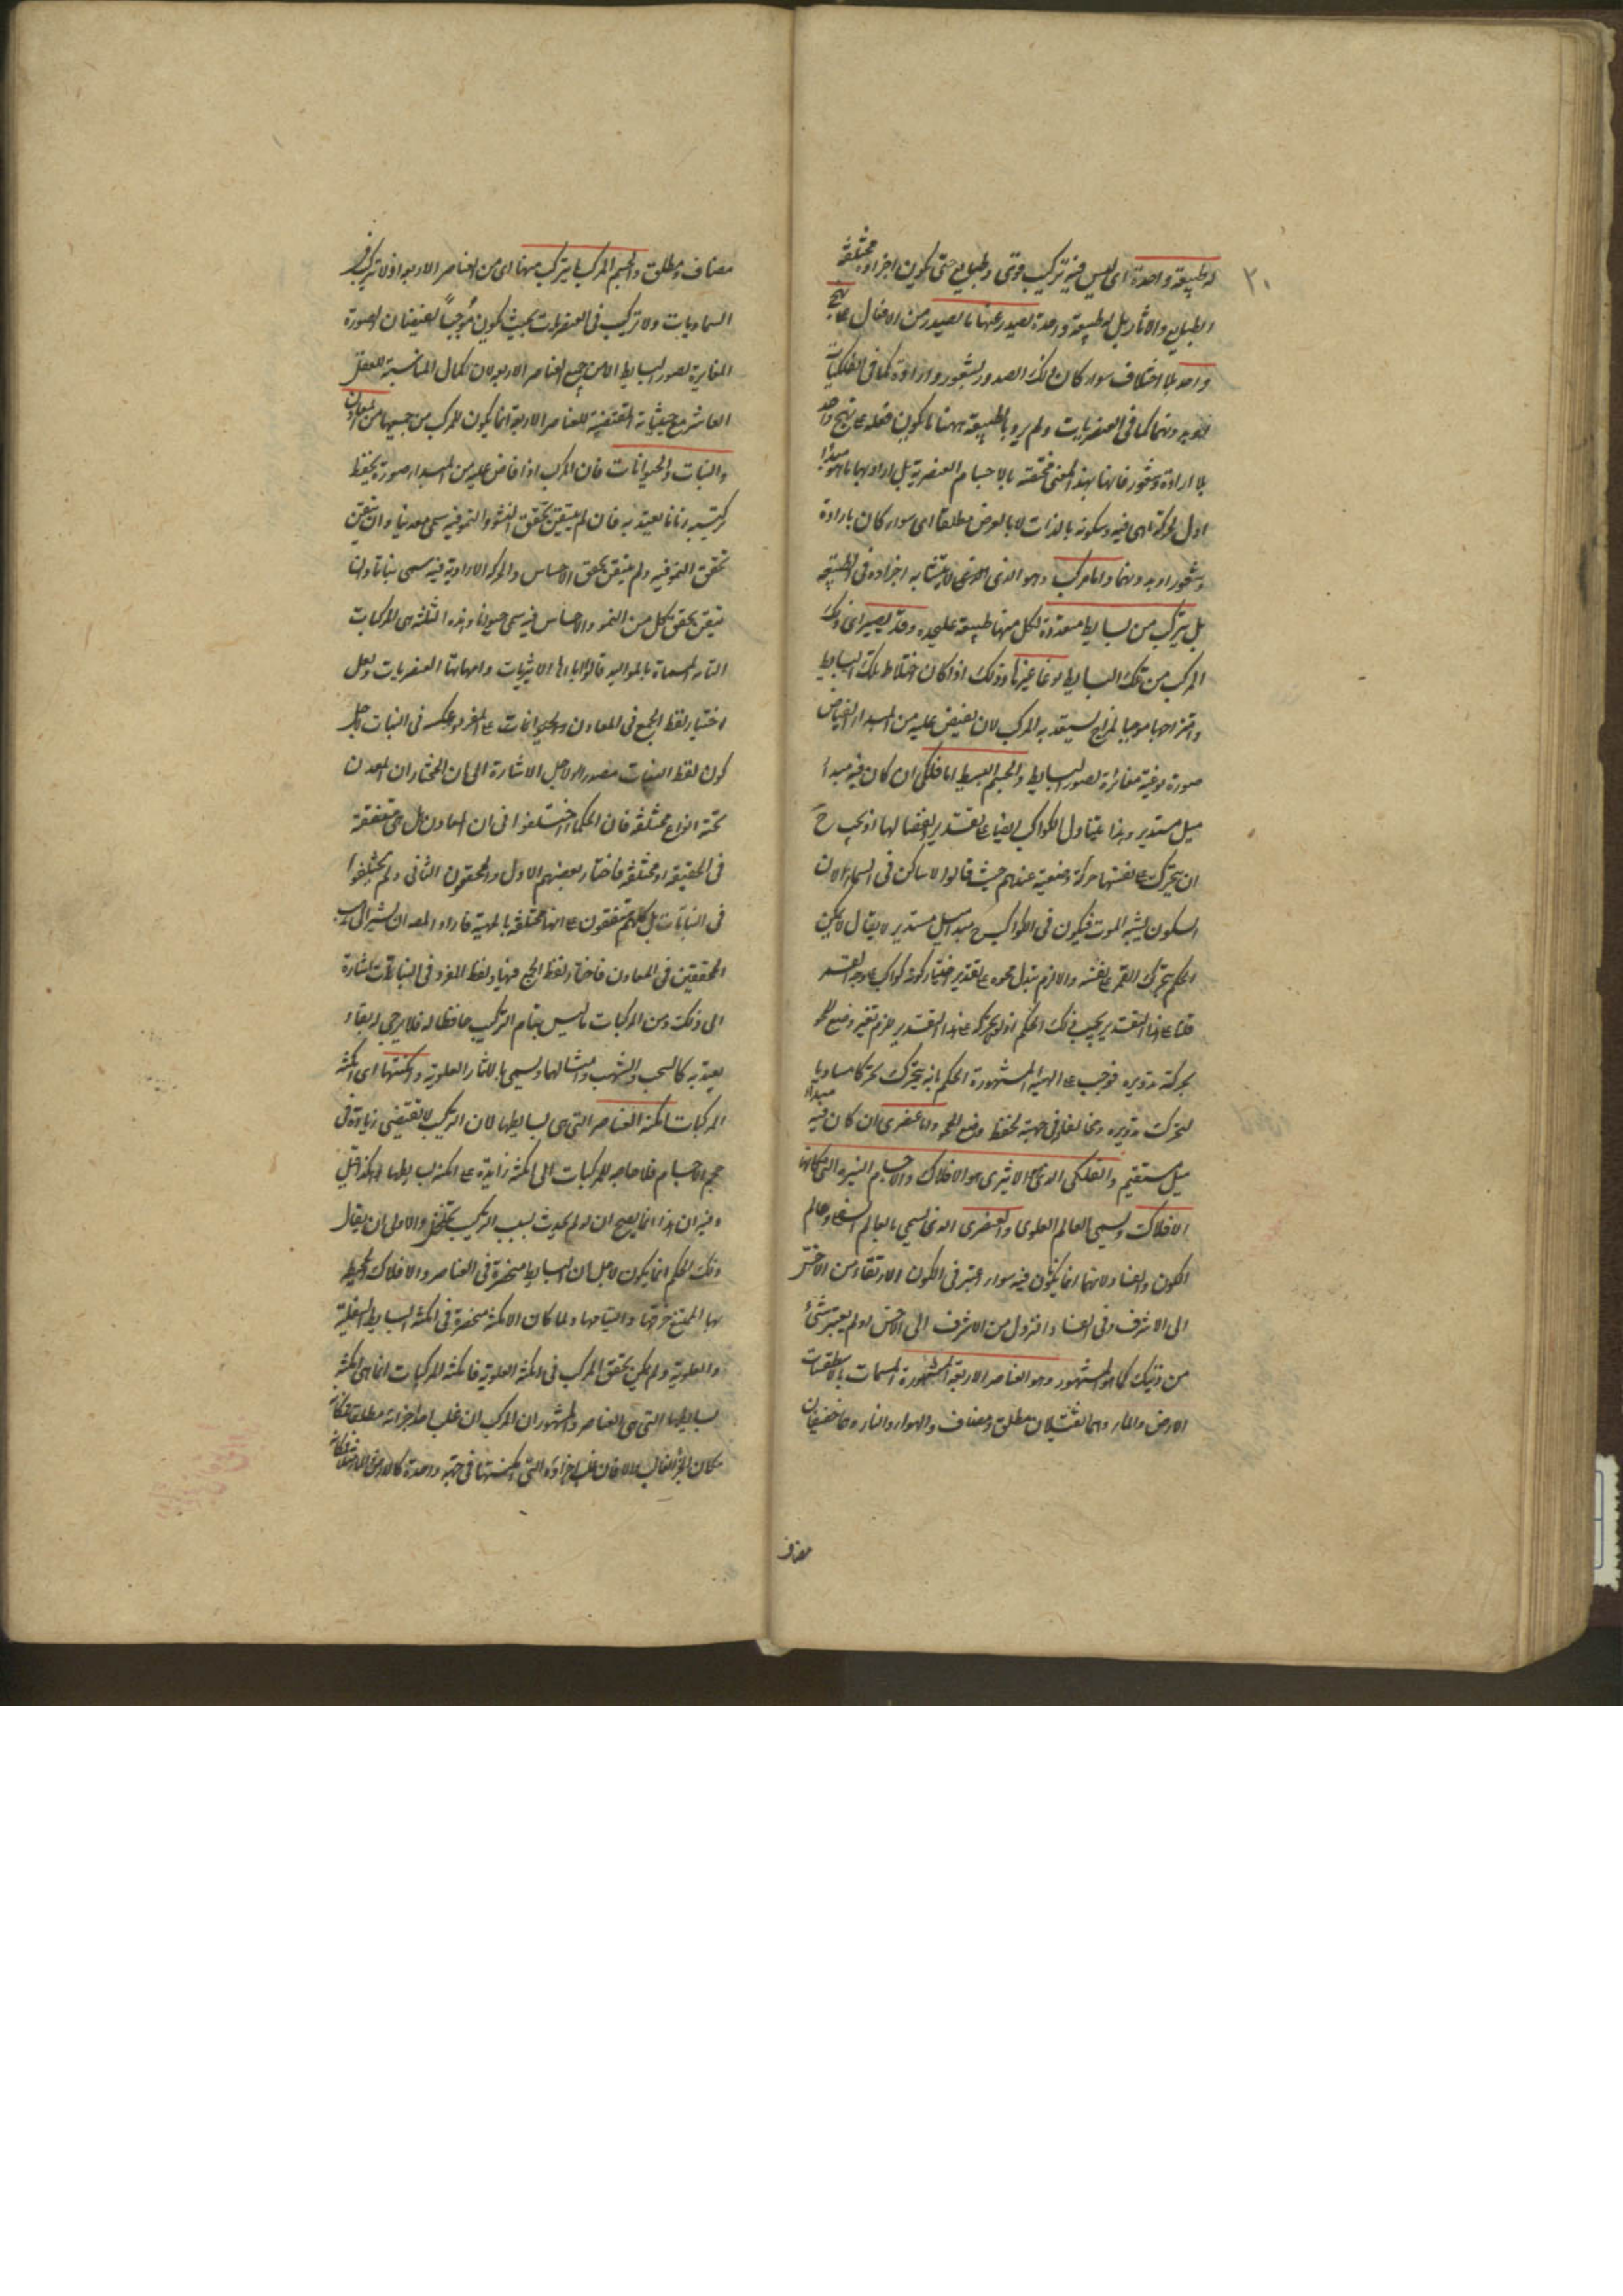 ٢٠
له طبيعة واحدة اى ليس فيه تركيب قوى وطبايع حتى تكون اجزاؤه مختلفة
الطبايع والاثار بل له طبيعة واحدة يصدر عنها ما يصدر من الافعال على نهج
واحد بلا اختلاف سواء كان ذلك الصدور بشعور وارادة كما فى الفلكيات
او بدونهما كما فى العنصريات ولم يرد بالطبيعة ههنا ما يكون فعله على نهج واحد
بلا ارادة وشعور فانها بهذا المعنى مختصة بالاجسام العنصرية بل اراد بها ما هو مبدأ
اول لحركة ما هى فيه وسكونه بالذات لا بالعرض مطلقا اى سواء كان بارادة
وشعور او بدونهما واما مركب وهو الذى لا يتشابه اجزاؤه فى الطبيعة
بل يتركب من بسايط متعددة لكل منها طبيعة عليحدة وقد يصير اى ذلك
المركب من تلك البسايط نوعا غيرها وذلك اذا كان اختلاط تلك البسايط
وامتزاجها موجبا لمزاج يستعد به المركب لان يفيض عليه من المبدأ الفياض
صورة نوعية مغائرة لصور البسايط والجسم البسيط اما فلكى ان كان فيه مبدأ
ميل مستدير وهذا يتناول الكواكب ايضا على تقدير انفصالها اذ يجب ح
ان يتحرك على نفسها حركة وضعية عندهم حيث قالوا لا ساكن فى السماء لان
السكون يشبه الموت فيكون فى الكواكب ح مبدأ ميل مستدير لا يقال لا يمكن
الحكم بتحرك القمر على نفسه والا لزم تبدل محوه على تقدير اختيار كونه كواكب
قلنا على هذا التقدير يجب ذلك الحكم اذ لو لم يتحرك على هذا التقدير لزم تغير وضع المحو
بحركة تدويره فوجب على الهيئة المشهورة الحكم بانه يتحرك تحركا مساويا
لتحرك تدويره ومخالفا فى جهته لحفظ وضع المحو واما عنصرى ان كان فيه مبدأ
ميل مستقيم والفلكى الاثيرى هو الافلاك والاجسام النيرة التى مكانها
الافلاك ويسمى بالعالم العلوى والعنصرى الذى يسمى بالعالم السفلى وعالم
الكون والفساد لانهما انما يكونان فيه سواء اعتبر فى الكون الارتقاء من الاخس
الى الاشرف وفى الفساد النزول من الاشرف الى الاخس او لم يعتبر شئ
من ذينك كما هو المشهور وهو العناصر الاربعة المشهورة المسمات بالاسطقسات
الارض والماء وهما ثقيلان مطلق ومضاف والهواء والنار وهما خفيفان
مضاف
مضاف ومطلق والجسم المركب ما يتركب منها اى من العناصر الاربعة اذ لا تركيب فى
السماويات ولا تركيب فى العنصريات بحيث يكون موجبا لفيضان الصورة
المغايرة لصور البسايط الا من جميع العناصر الاربعة لان كمال المناسبة للعقل
العاشر مع حيثياته المقتضية للعناصر الاربعة انما يكون للمركب من جميعها من المعادن
والنبات والحيوانات فان المركب اذا فاض عليه من المبدأ صورة يحفظ
تركيبه زمانا يعتد به فان لم يتيقن تحقق النشو والنمو فيه سمى معدنيا وان تيقن
تحقق النمو فيه ولم يتيقن تحقق الاحساس والحركة الارادية فيه يسمى نباتا وان
تيقن تحقق كل من النمو والاحساس فيه سمى حيوانا وهذه الثلثة هى المركبات
التامة المسماة بالمواليد قالوا اباؤها الاثيريات وامهاتها العنصريات ولعل
اختيار لفظ الجمع فى المعادن والحيوانات على المفرد وعكسه فى النبات لاجل
كون لفظ النبات مصدرا او لاجل الاشارة الى ان المختار ان المعدن
تحته انواع مختلفة فان الحكماء اختلفوا فى ان المعادن هل هى متفقة
فى الحقيقة او مختلفة فاختار بعضهم الاول والمحققون الثانى ولم يختلفوا
فى النباتات بل كلهم متفقون على انها مختلفة بالمهية فاراد المص ان يشير الى مذهب
المحققين فى المعادن فاختار لفظ الجمع فيها ولفظ المفرد فى النباتات اشارة
الى ذلك ومن المركبات ما ليس بتام التركيب حافظا له فلا يرجى له بقاء
يعتد به كالسحب والشهب وامثالهما ويسمى بالاثار العلوية وامكنتها اى امكنة
المركبات امكنة العناصر التى هى بسايطها لان التركيب لا يقتضى زيادة فى
حجم الاجسام فلا حاجة للمركبات الى امكنة زايدة على امكنة بسايطها هكذا قيل
وفيه ان هذا انما يصح ان لو لم يحدث بسبب التركيب تخلخل والاولى ان يقال
ذلك الحكم انما يكون لاجل ان البسايط منحصرة فى العناصر والافلاك المحيطة
بها الممتنع خرقها والتيامها ولما كان الامكنة منحصرة فى امكنة البسايط السفلية
والعلوية ولم يمكن تحقق المركب فى الامكنة العلوية فامكنة المركبات انما هى امكنة
بسايطها التى هى العناصر والمشهور ان المركب ان غلب احد اجزائه مطلقا فمكانه
مكان الجزء الغالب والا فان غلب اجزاؤه التى امكنتها فى جهة واحدة كالارض